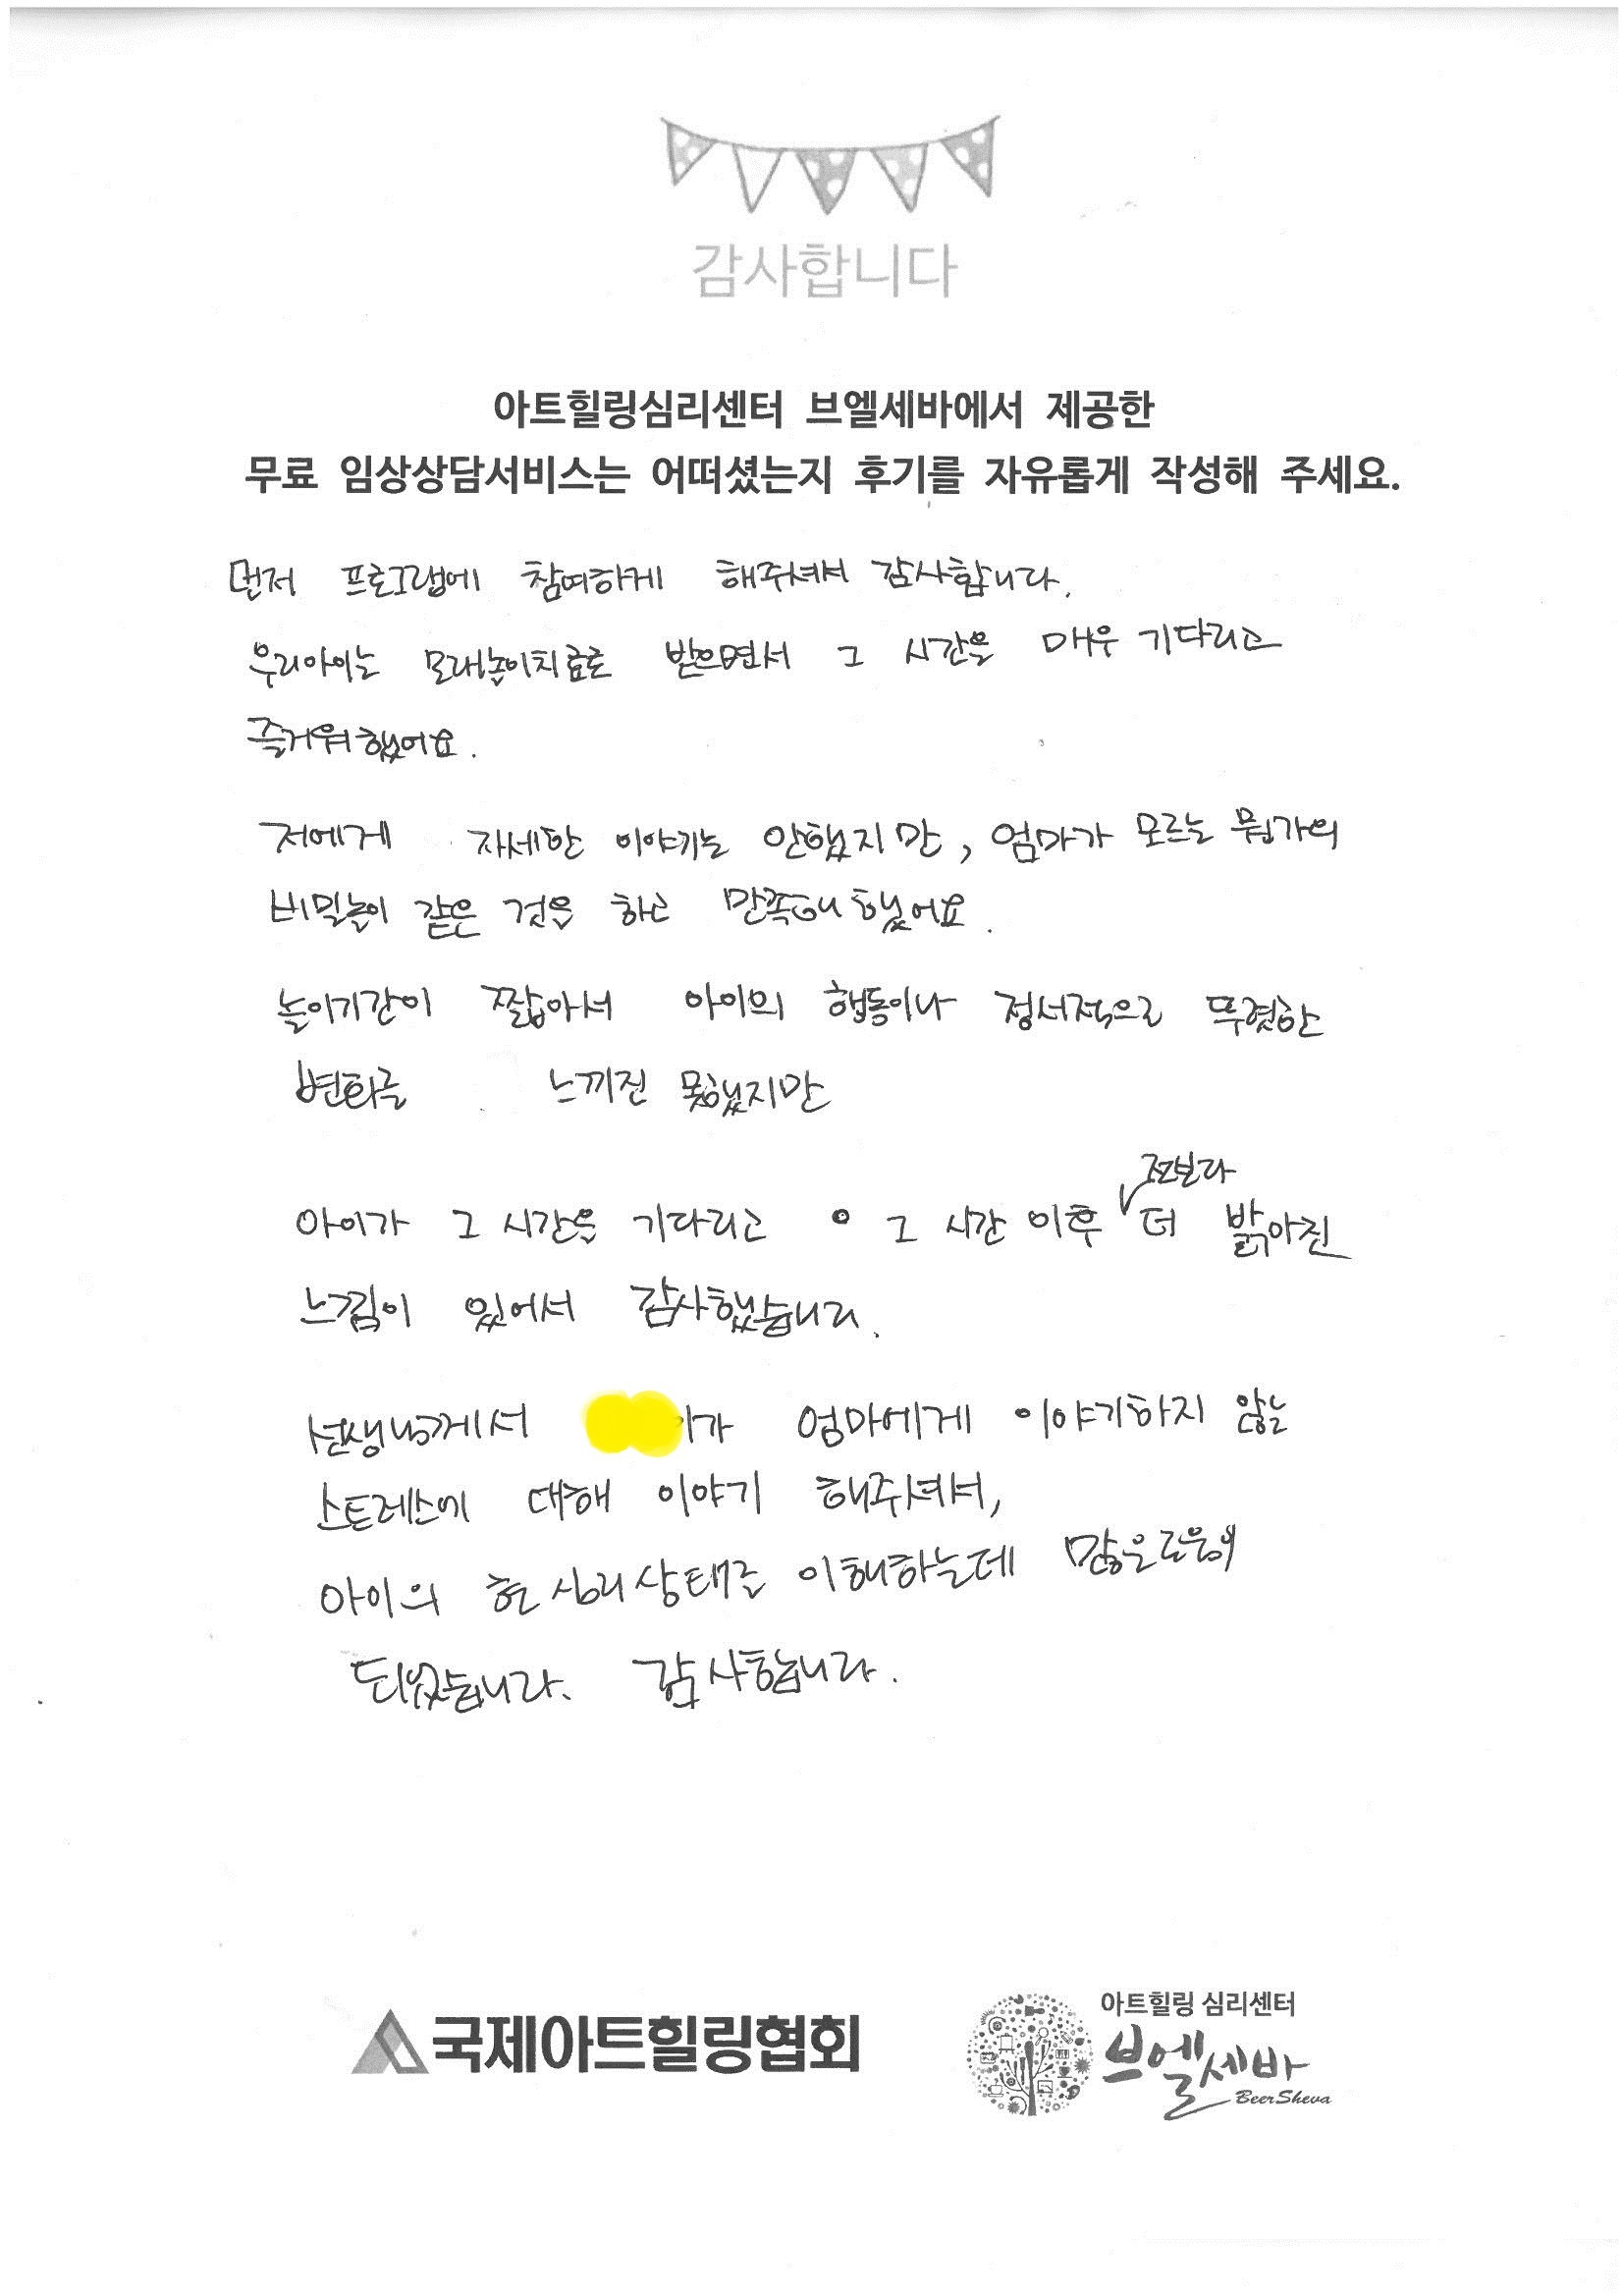 감사합니다
아트힐링심리센터 브엘세바에서 제공한
무료 임상상담서비스는 어떠셨는지 후기를 자유롭게 작성해 주세요.
먼저 프로그램에 참여하게 해주셔서 감사합니다.
우리아이는 모래놀이치료를 받으면서 그 시간을 매우 기다리고
즐거워했어요.
저에게 자세한 이야기는 안했지만, 엄마가 모르는 뭔가의
비밀놀이 같은 것을 하고 만족해 했어요.
놀이기간이 짧아서 아이의 행동이나 정서적으로 뚜렷한
변화를 느끼진 못했지만
전보다
아이가 그 시간을 기다리고 그 시간 이후 더 밝아진
느낌이 있어서 감사했습니다.
선생님께서 가 엄마에게 이야기하지 않는
스트레스에 대해 이야기 해주셔서,
아이의 현 심리상태를 이해하는데 많은도움이
되었습니다. 감사합니다.
국제아트힐링협회
아트힐링 심리센터
브엘세바
BeerSheva